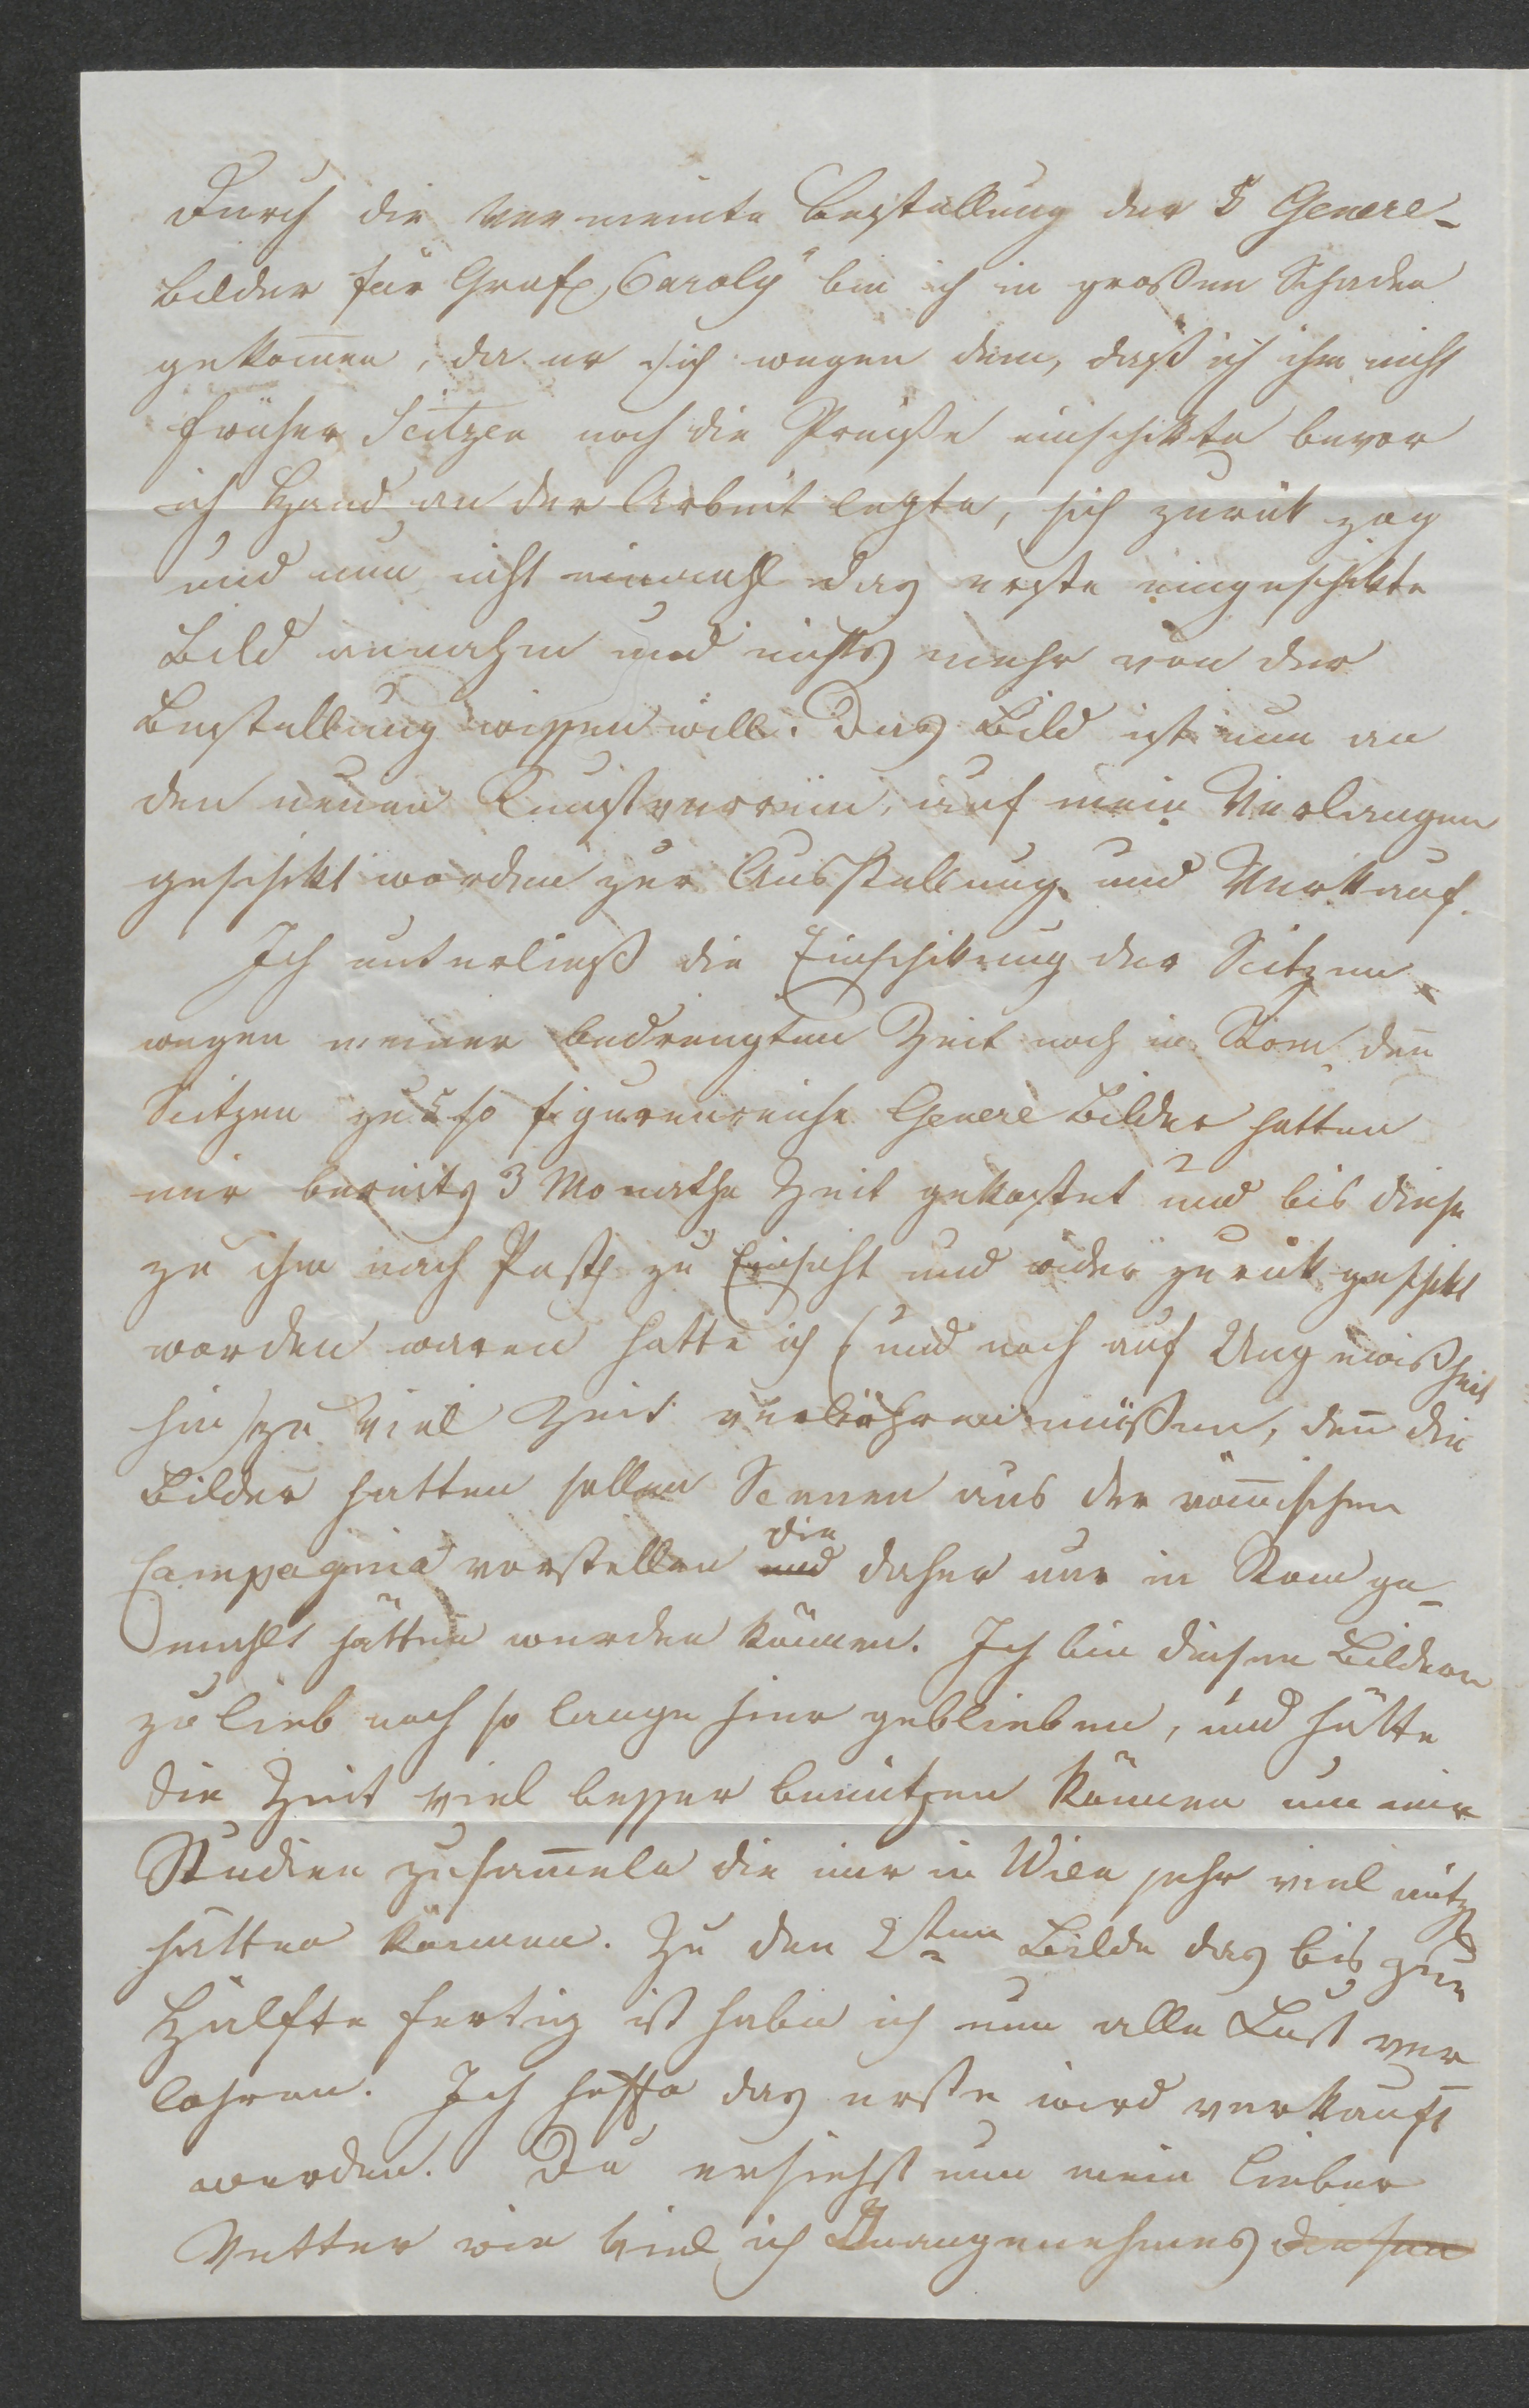 Durch die vermeinte Bestellung der 5 Genere-
bilder für Graf „Caroly" bin ich in großen Schaden
gekom̄en, da er sich wegen dem, daß ich ihm nicht
früher Scitzen noch die Preiße einschikte bevor
ich Hand an der Arbeit legte, sich zurük zog
und nun nicht einmahl das erste eingeschikte
Bild annahm und nichts mehr von der
Bestellung wissen will. Das Bild ist nun an
den neuen Kunstverein, auf mein Verlangen
geschikt worden zur Ausstellung und Verkauf.
Ich unterließ die Einschikung der Scitzen
wegen meiner bedrengten Zeit noch in Rom den̄
Scitzen zu 5 so figurenreiche Genere Bilder hatten
mir bereits 3 Monathe Zeit gekostet und bis diese
zu ihm nach Pesth zu Einsicht und wider zurük geschikt
worden waren hatte ich (und noch auf Ungewißheit
hin) zu viel Zeit verliehren müßen, den̄ die
Bilder hatten sollen Scenen aus der röm̄ischen
Campagnia vorstellen und die daher nur in Rom ge-
mahlt hätten werden können. Ich bin diesen Bildern
zu lieb noch so lange hier geblieben, und hätte
die Zeit viel besser benützen können um mir
Studien zusam̄eln die mir in Wien sehr viel nützen
hätten können. Zu den 2ten Bilde das bis zur
Hälfte fertig ist habe ich nun alle Lust ver-
lohren. Ich hoffe das erste wird verkauft
werden. Du ersiehst nun mein lieber
Vetter wie viel ich Unangenehmes diesen